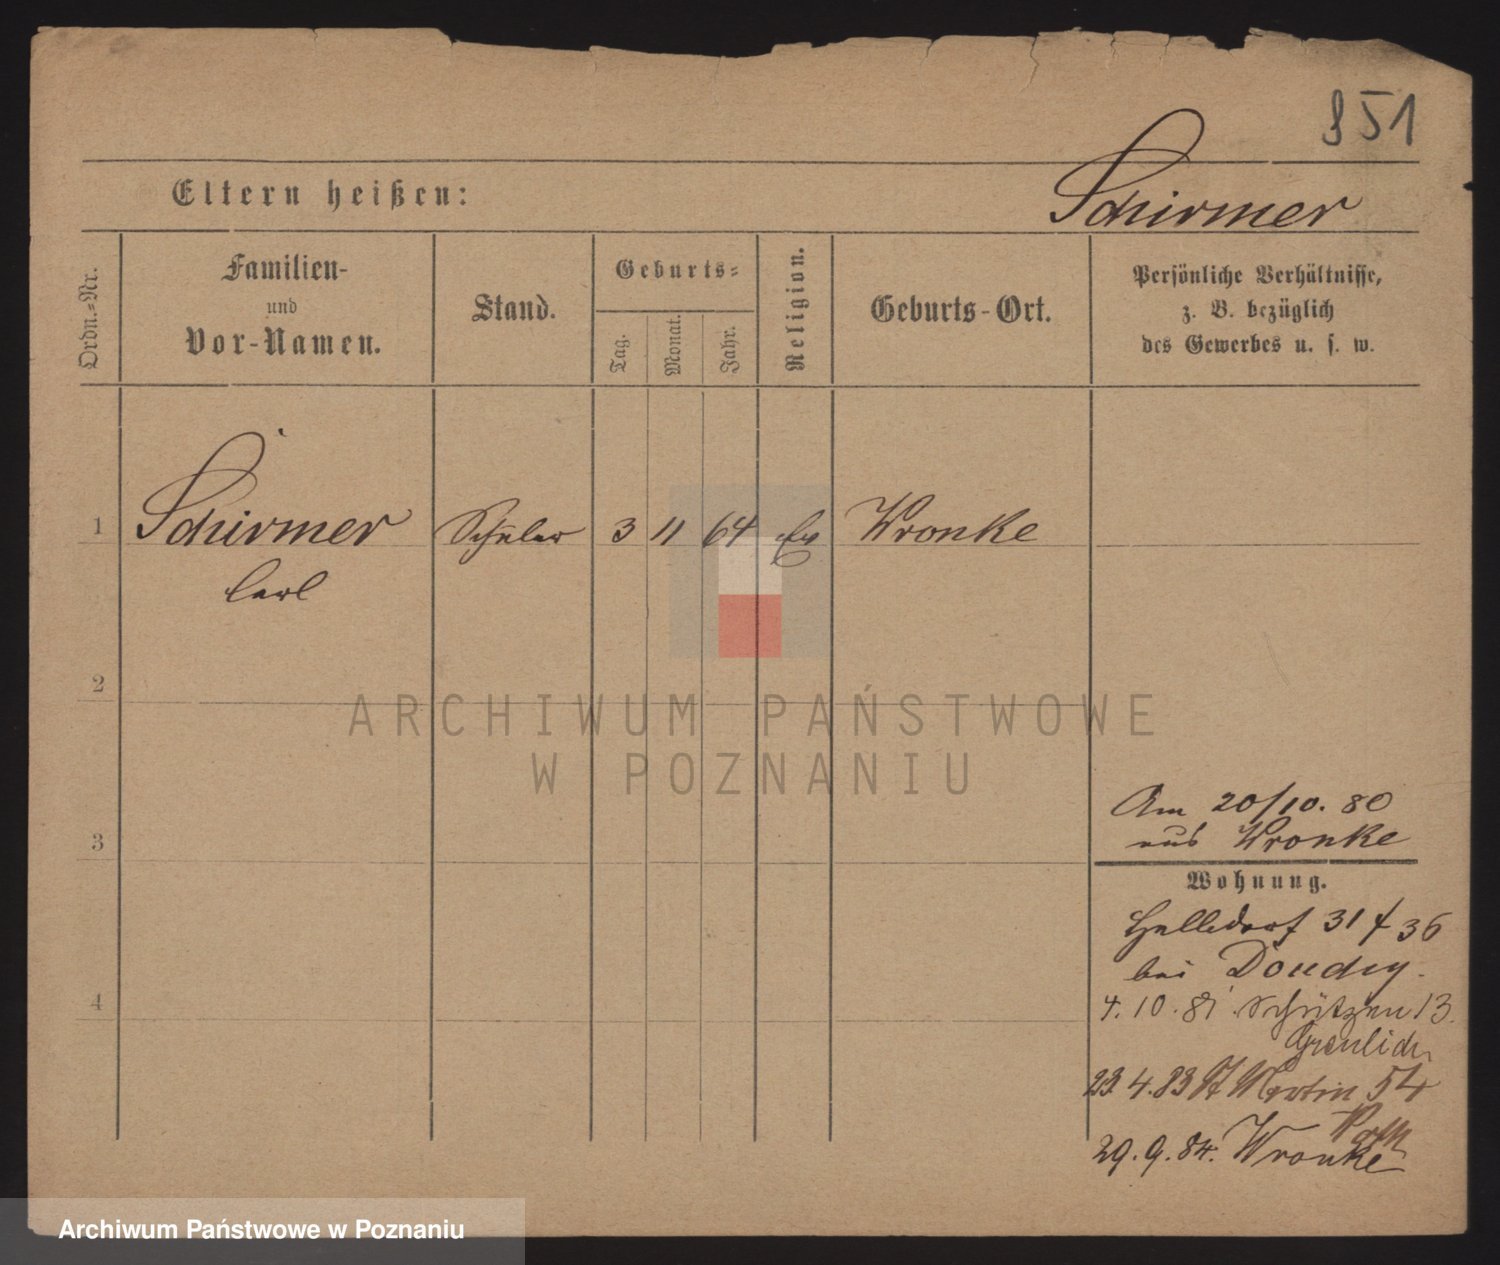 851
Eltern heißen:
Schirmer
Ordn.-Nr.
Familien-
und
Vor-Namen.
Stand.
Geburts-
Tag.
Monat.
Jahr.
Religion.
Geburts-Ort.
Persönliche Verhältnisse,
z. B. bezüglich
des Gewerbes u. s. w.
1 Schirmer Schüler 3 11 64 Ev Wronke
Carl
2
ARCHIWUM PAŃSTWOWE
W POZNANIU
3
4
Am 20/10. 80
aus Wronke
Wohnung.
Halbdorf 31 / 36
bei
4. 10. 81. Schützen 13.
23. 4. 83 St Martin 54
29. 9. 84. Wronke
Archiwum Państwowe w Poznaniu